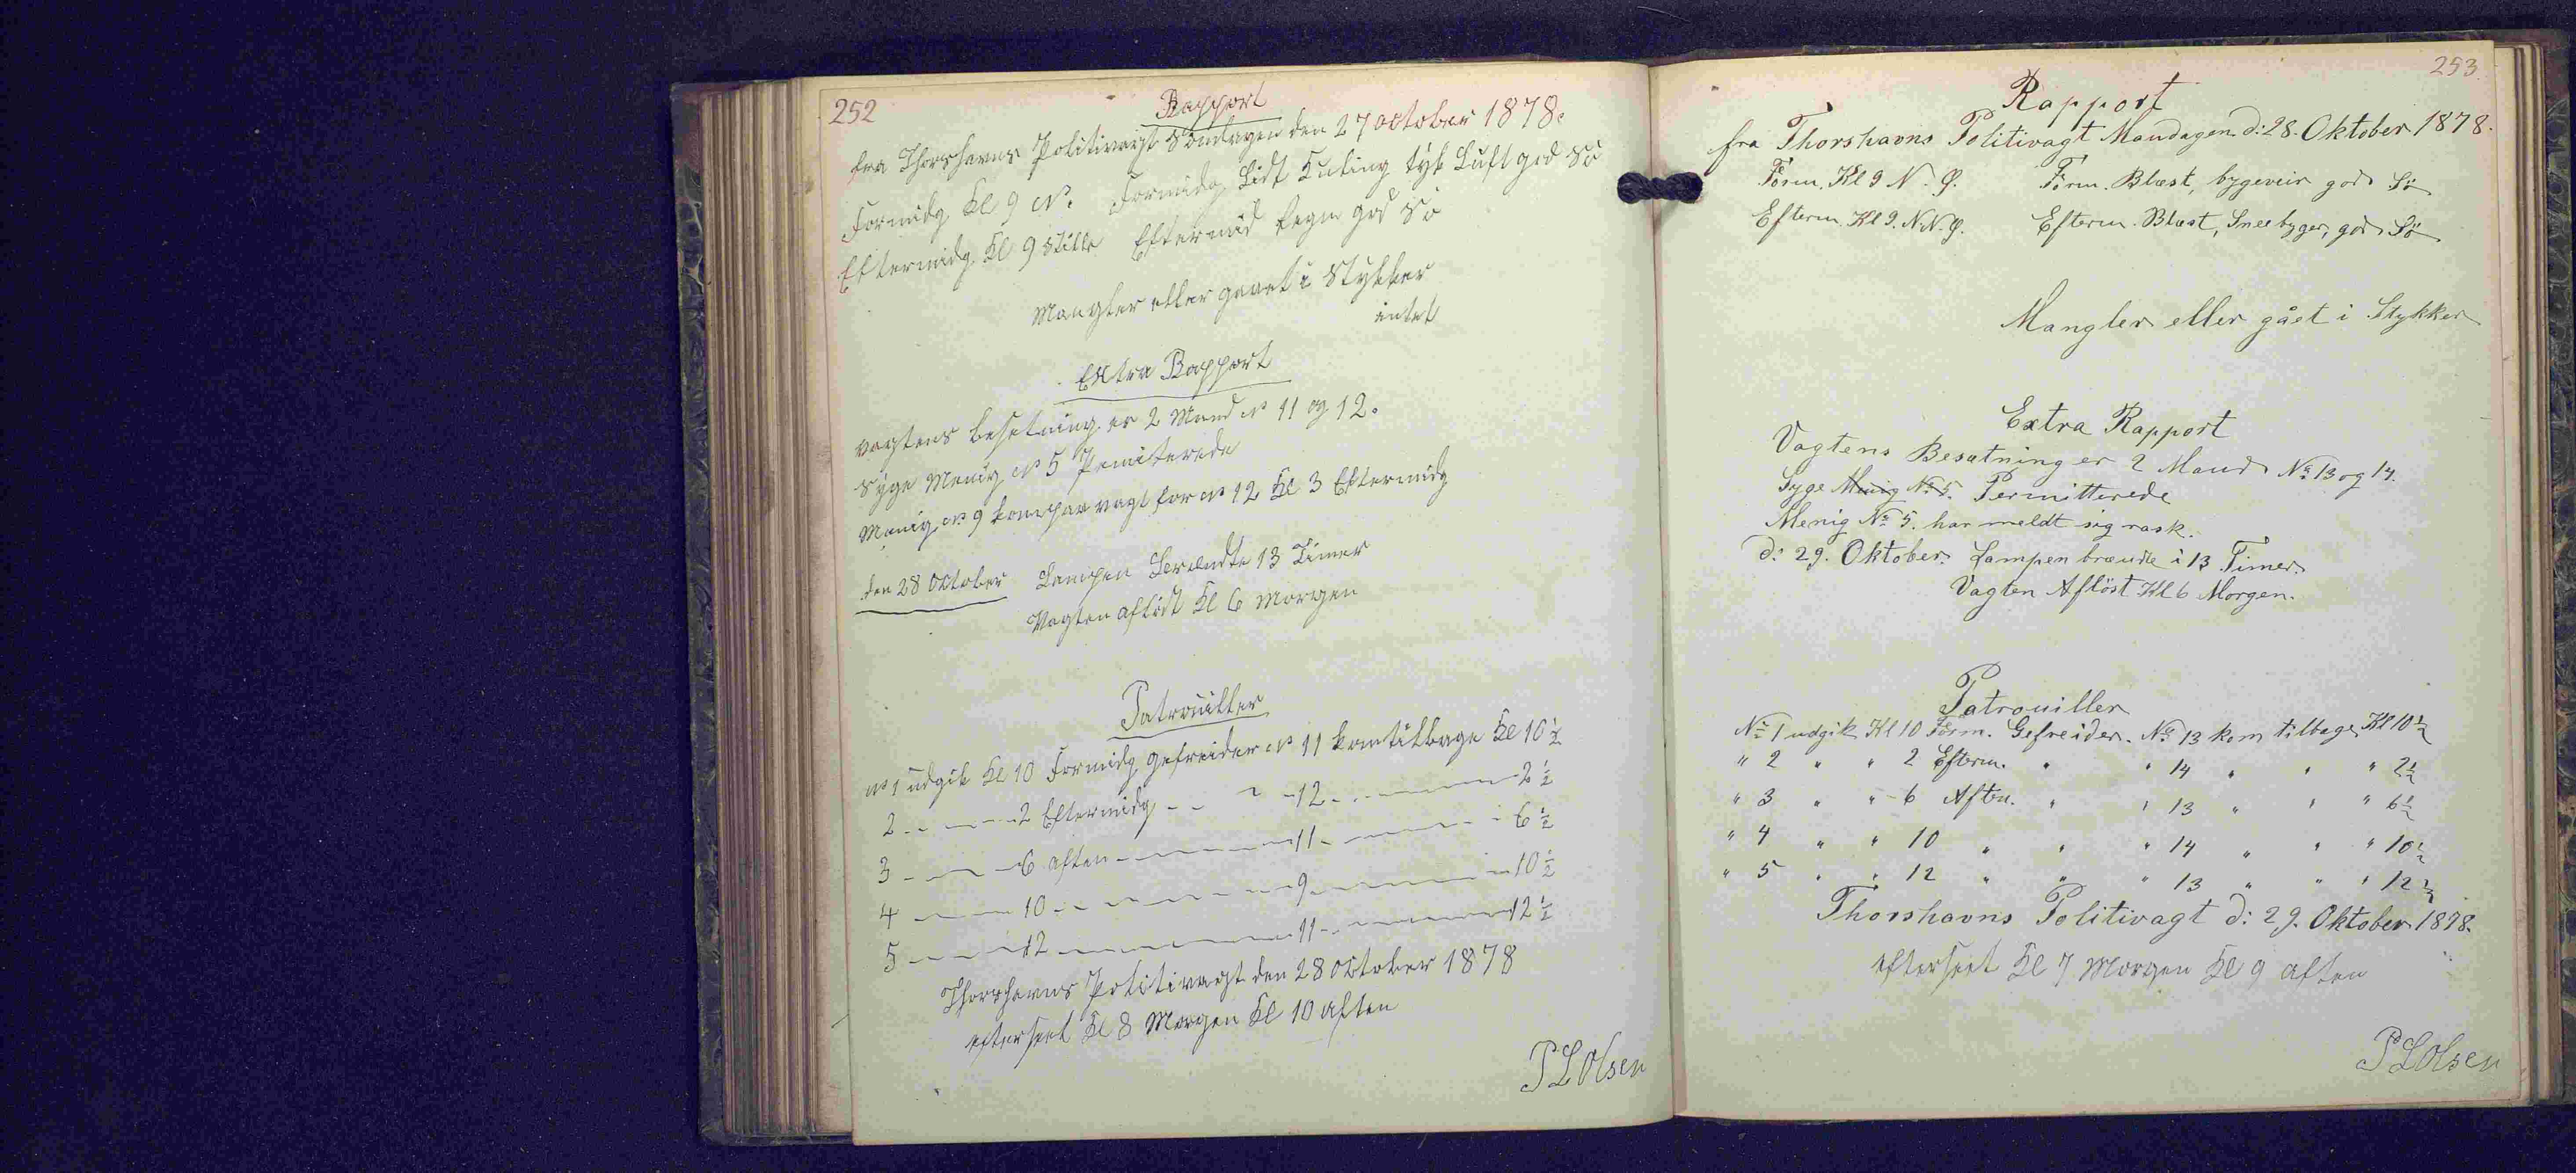 252
Rapport
fra Thorshavns Politivagt Söndagen den 27 October 1878.
Formidg Kl 9 N. Formidg Lidt Kuling tyk Luft god Sö
Eftermidg Kl 9 Stille Eftermid Regn god Sö
Mangler eller gaaet i Stykker
intet
Extra Rapport
vagtens besetning er 2 Mand No 11 og 12.
Syge Menig No 5 Permiterede
Menig No 9 kom paa vagt for No 12 Kl 3 Eftermidg
den 28 October Lampen Brændte 13 Timer
Vagten aflöst Kl 6 Morgen
Patrouiller
No 1 udgik Kl 10 Formidg gefreider No 11 kom tilbage Kl 10 ½
2 - - - 2 Eftermidg - - - 12 - - - 2 ½
3 - - - 6 aften - - - 11 - - - 6 ½
4 - - - 10 - - - 9 - - - 10 ½
5 - - - 12 - - - 11 - - - 12 ½
Thorshavns Politivagt den 28 October 1878
efterseet Kl 8 Morgen Kl 10 aften
P L Olsen
253.
Rapport
fra Thorshavns Politivagt Mandagen d: 28. Oktober 1878.
Form. Kl 9 N. Ø. Form. Blæst, bygeveir god Sö
Efterm. Kl 9. N.N.Ø. Efterm. Blæst, Sneebyger, god Sö
Mangler eller gået i Stykker
Extra Rapport
Vagtens Besætning er 2 Mand No 13 og 14.
Syge Menig No 5. Permitterede
Menig No 5. har meldt sig rask.
d: 29. Oktober. Lampen brændte i 13 Timer.
Vagten Aflöst Kl 6 Morgen.
Patrouiller
No 1 udgik Kl 10 Form. Gefreider. No 13 kom tilbage Kl 10 ½
" 2 " " 2 Efterm. " " 14 " " " 2 ½
" 3 " " 6 Aften. " " 13 " " " 6 ½
" 4 " " 10 " " " 14 " " " 10 ½
" 5 " " 12 " " " 13 " " " 12 ½
Thorshavns Politivagt d: 29. Oktober 1878.
efterseet Kl 7 Morgen Kl 9 aften
P L Olsen